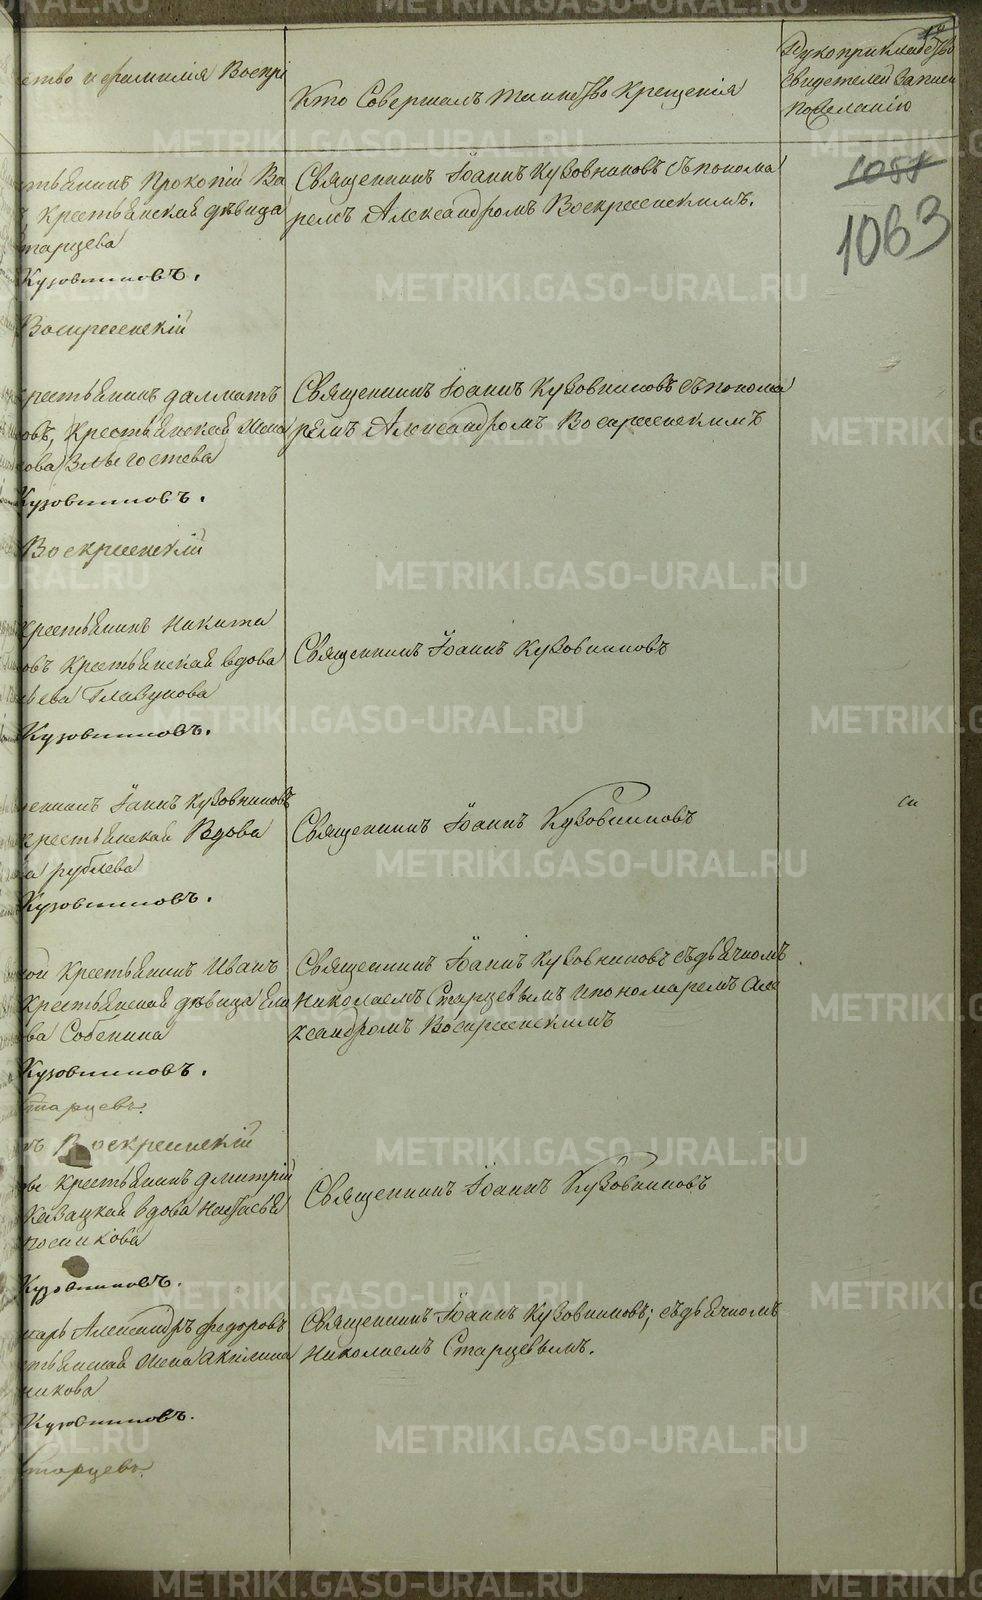 ство и фамилія Воспрі
Кто Совершалъ таинство Крещенія
Рукоприкладство
свидетелей записи
по желанію
1063
стьянинъ Прокопій Ва
Крестьянская дѣвица
тарцева
Кузовниковъ.
Воскресенскій
Священникъ Іоаннъ Кузовниковъ съ понома
ремъ Александромъ Воскресенскимъ.
крестьянинъ далматъ
овъ, Крестьянская жена
ова Злыгостева
Кузовниковъ.
Воскресенскій
Священникъ Іоаннъ Кузовниковъ съ понома
ремъ Александромъ Воскресенскимъ
Крестьянинъ Никита
овъ Крестьянская вдова
ьева Главунова
Кузовниковъ.
Священникъ Іоаннъ Кузовниковъ
щенникъ Іоаннъ Кузовниковъ
Крестьянская Вдова
ва рублева
Кузовниковъ.
Священникъ Іоаннъ Кузовниковъ
кой Крестьянинъ Иванъ
Крестьянская дѣвица Ели
ва Собенина
Кузовниковъ.
Старцевъ.
Воскресенскій
Священникъ Іоаннъ Кузовниковъ съ дьячкомъ
Николаемъ Старцевымъ и пономаремъ Але
ксандромъ Воскресенскимъ
Крестьянинъ Дмитрій
Казацкая вдова Настасья
Кузовниковъ.
Священникъ Іоаннъ Кузовниковъ
марь Александръ федоровъ
стьянская жена Акилина
никова
Кузовниковъ.
Старцевъ.
Священникъ Іоаннъ Кузовниковъ; съ дьячкомъ
Николаемъ Старцевымъ.
METRIKI.GASO-URAL.RU